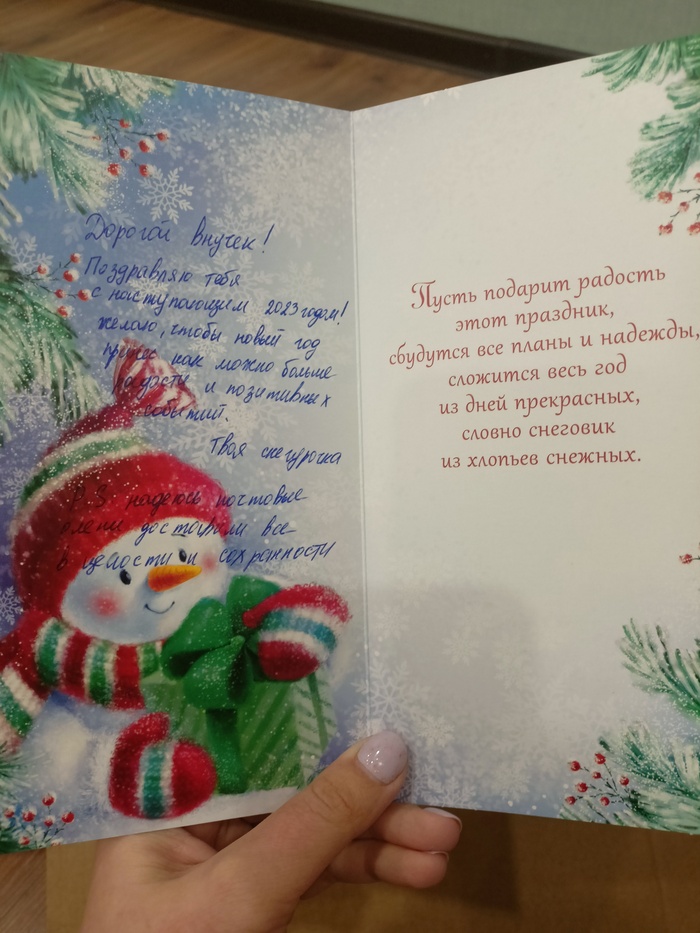 Дорогой внучек!
Поздравляю тебя
с наступающим 2023 годом!
желаю, чтобы новый год
принес как можно больше
радости и позитивных
событий.
Твоя снегурочка
P.S надеюсь почтовые
олени доставили все
в целости и сохранности
Пусть подарит радость
этот праздник,
сбудутся все планы и надежды,
сложится весь год
из дней прекрасных,
словно снеговик
из хлопьев снежных.